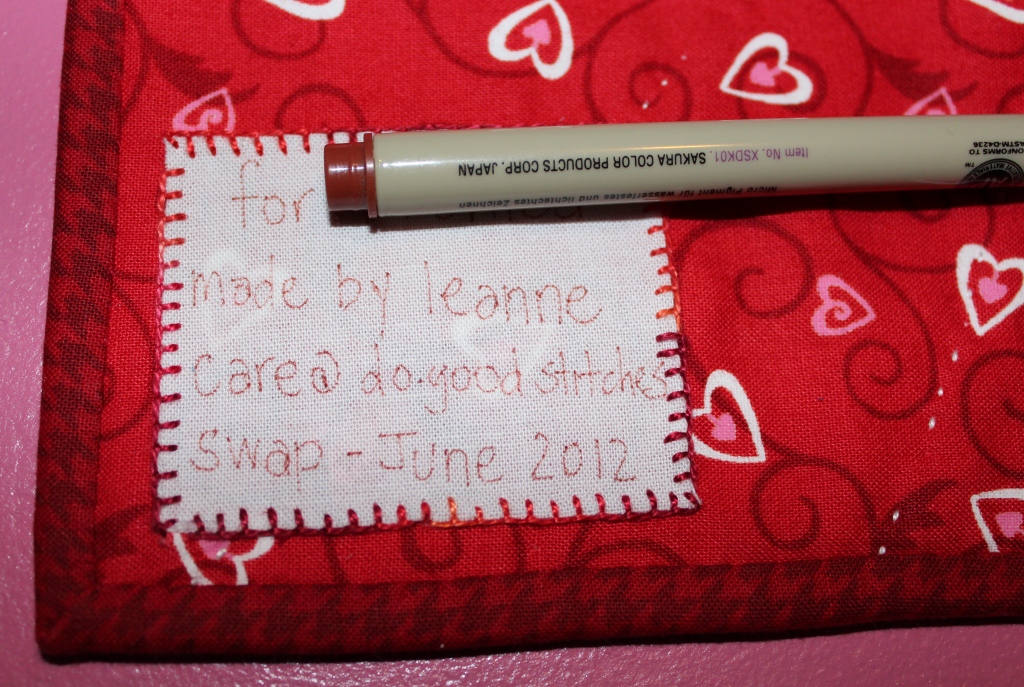 for
made by leanne
care@ do.good stitches
swap - June 2012
Item No. XSDK01.
SAKURA COLOR PRODUCTS CORP. JAPAN
Micro Pigment für wasserfestes und lichtechtes Zeichnen
CONFORMS TO
ASTM-D4236
TM